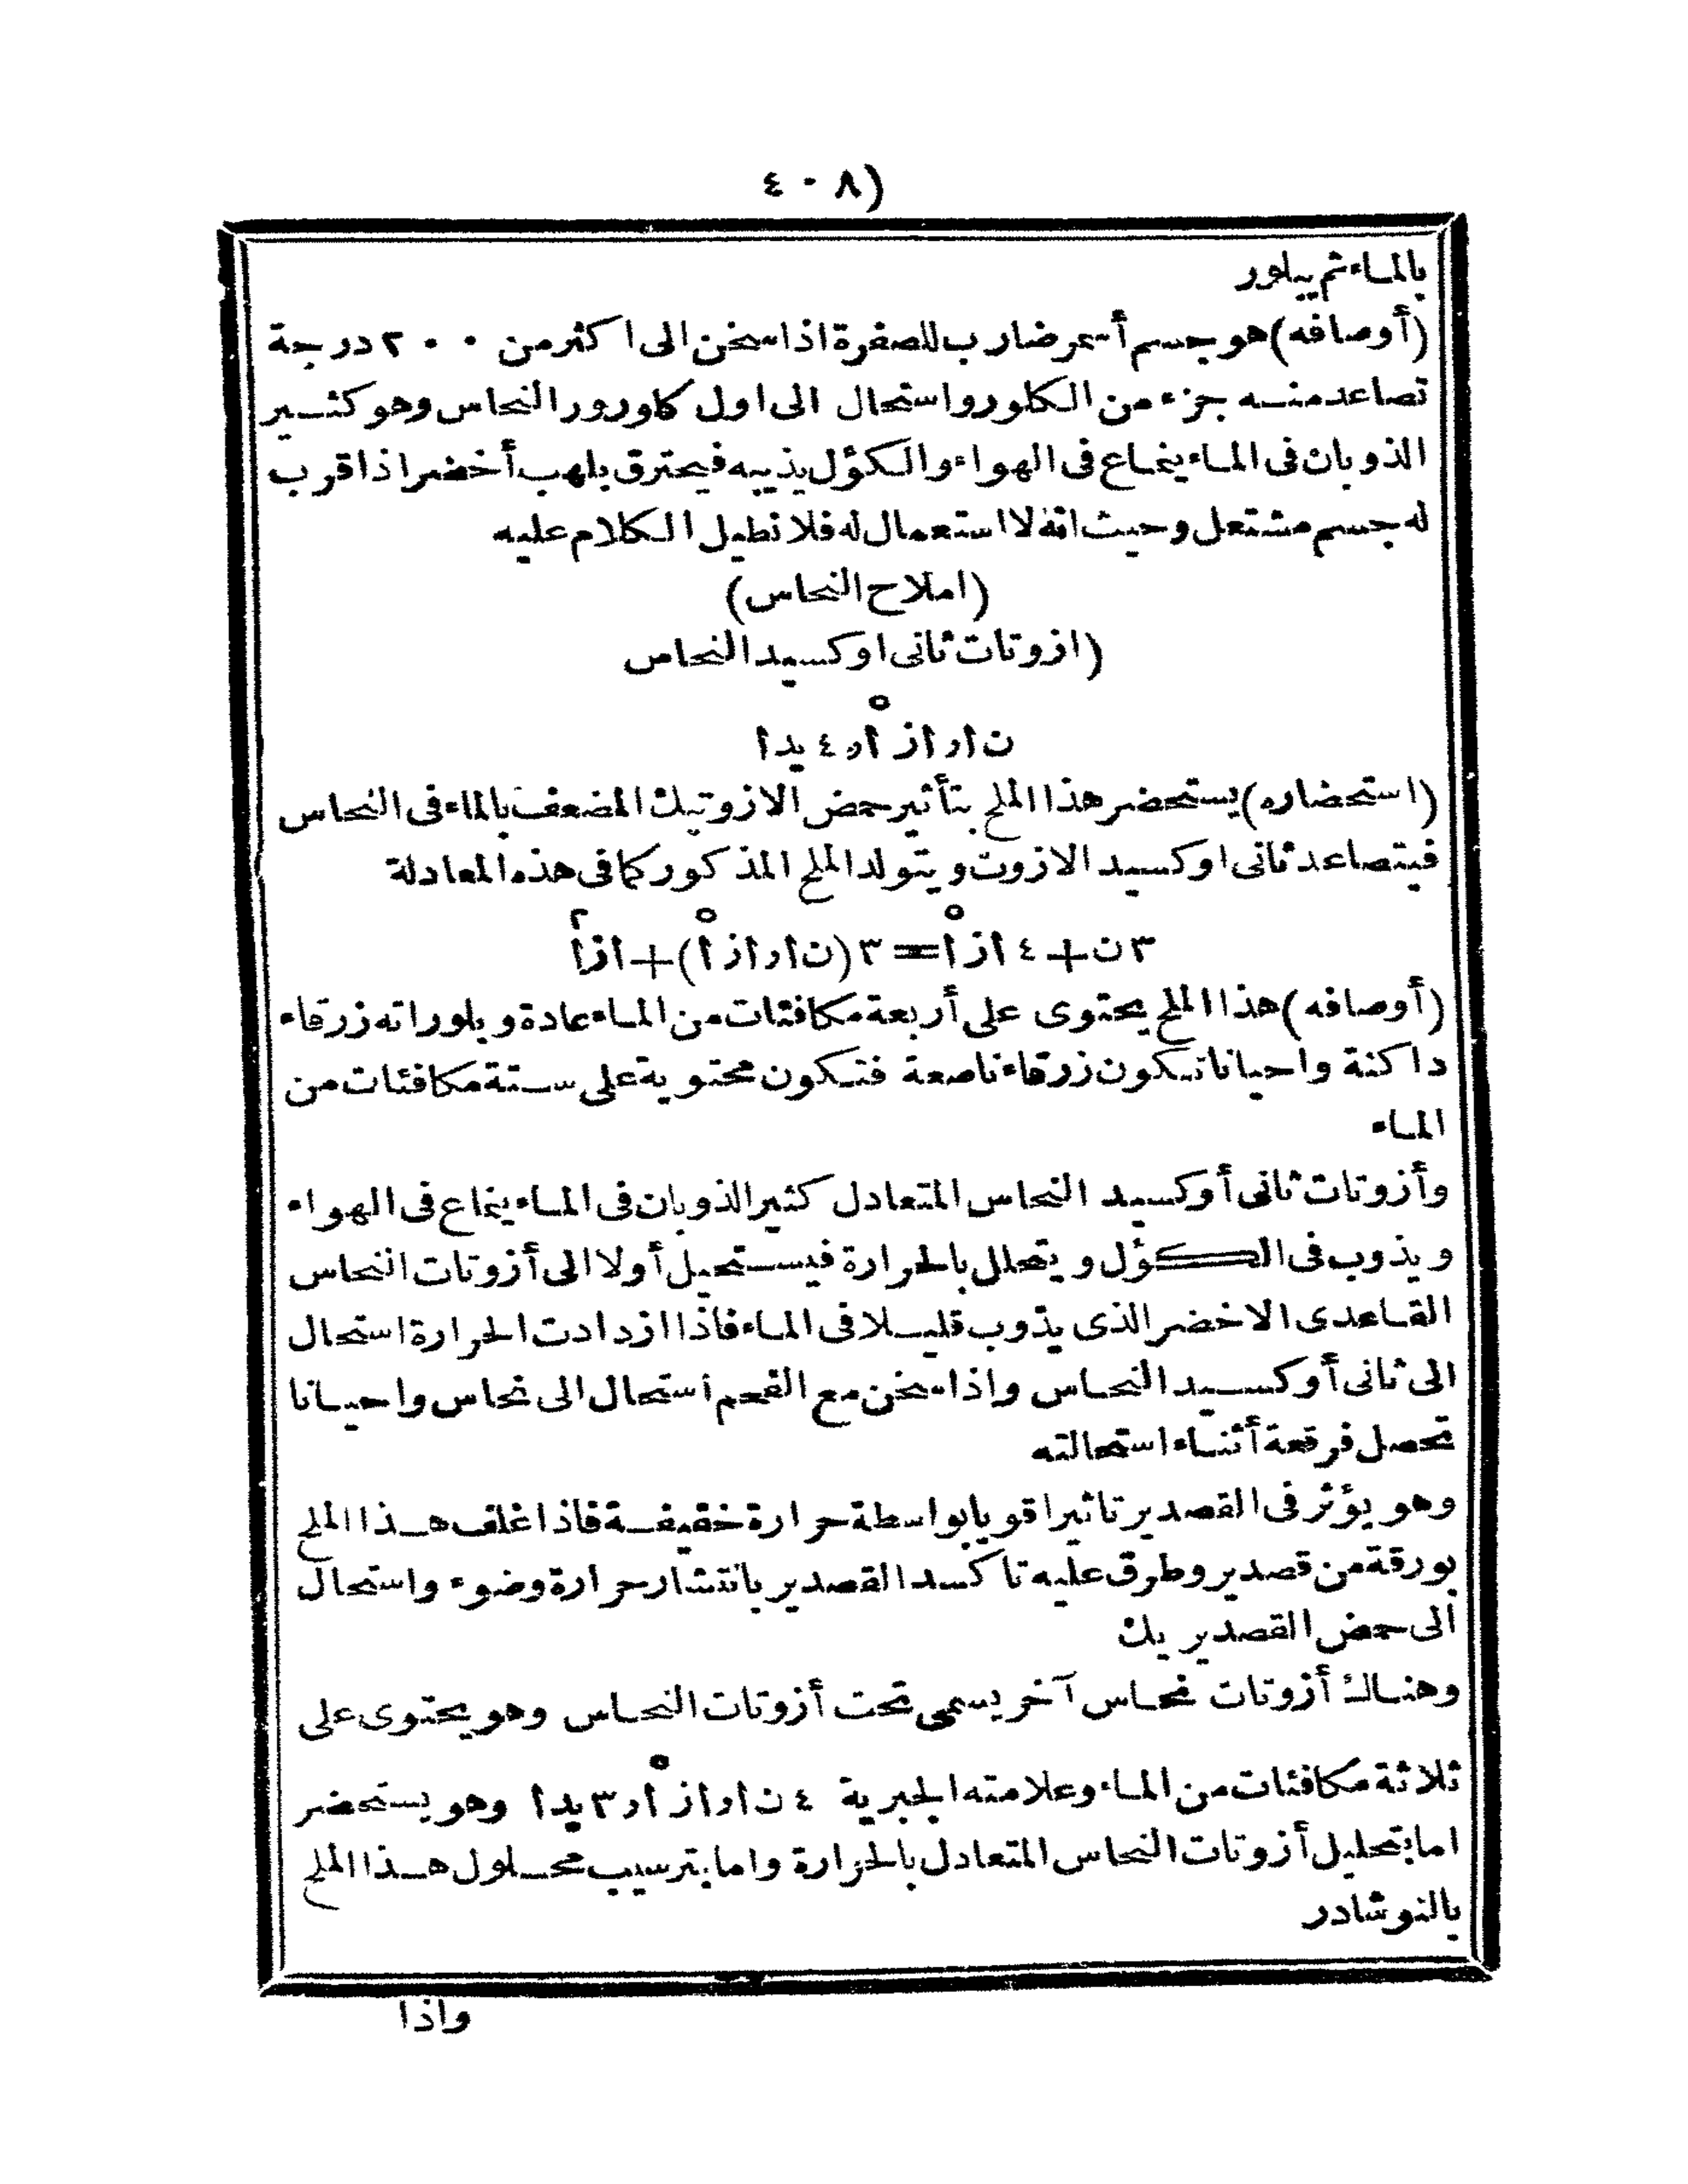 (٤٠٨
بالماء ثم يبلور
(أوصافه) هو جسم أسمر ضارب للصفرة اذا سخن الى اكثر من ٢٠٠ درجة
تصاعد منه جزء من الكلور واستحال الى اول كلورور النحاس وهو كثير
الذوبان فى الماء ينماع فى الهواء والكؤل يذيبه فيحترق بلهب أخضر اذا قرب
له جسم مشتعل وحيث انه لا استعمال له فلا نطيل الكلام عليه
(املاح النحاس)
(ازوتات ثانى اوكسيد النحاس
ن ا, از اْ, ٤ يد ا
(استحضاره) يستحضر هذا الملح بتأثير حمض الازوتيك المضعف بالماء فى النحاس
فيتصاعد ثانى اوكسيد الازوت ويتولد الملح المذكور كما فى هذه المعادلة
٣ ن + ٤ از ا٥ = ٣ (ن ا, از ا٥) + از ا٢
(أوصافه) هذا الملح يحتوى على أربعة مكافئات من الماء عادة وبلوراته زرقاء
داكنة واحيانا تكون زرقاء ناصعة فتكون محتوية على ستة مكافئات من
الماء
وأزوتات ثانى أوكسيد النحاس المتعادل كثير الذوبان فى الماء ينماع فى الهواء
ويذوب فى الكؤل ويتحلل بالحرارة فيستحيل أولا الى أزوتات النحاس
القاعدى الاخضر الذى يذوب قليلا فى الماء فاذا ازدادت الحرارة استحال
الى ثانى أوكسيد النحاس واذا سخن مع الفحم استحال الى نحاس واحيانا
تحصل فرقعة أثناء استحالته
وهو يؤثر فى القصدير تاثيرا قويا بواسطة حرارة خفيفة فاذا غلف هذا الملح
بورقة من قصدير وطرق عليه تاكسد القصدير بانتشار حرارة وضوء واستحال
الى حمض القصديريك
وهناك أزوتات نحاس آخر يسمى تحت أزوتات النحاس وهو يحتوى على
ثلاثة مكافئات من الماء وعلامته الجبرية ٤ ن ا, از ا٥, ٣ يد ا وهو يستحضر
اما بتحليل أزوتات النحاس المتعادل بالحرارة واما بترسيب محلول هذا الملح
بالنوشادر
واذا